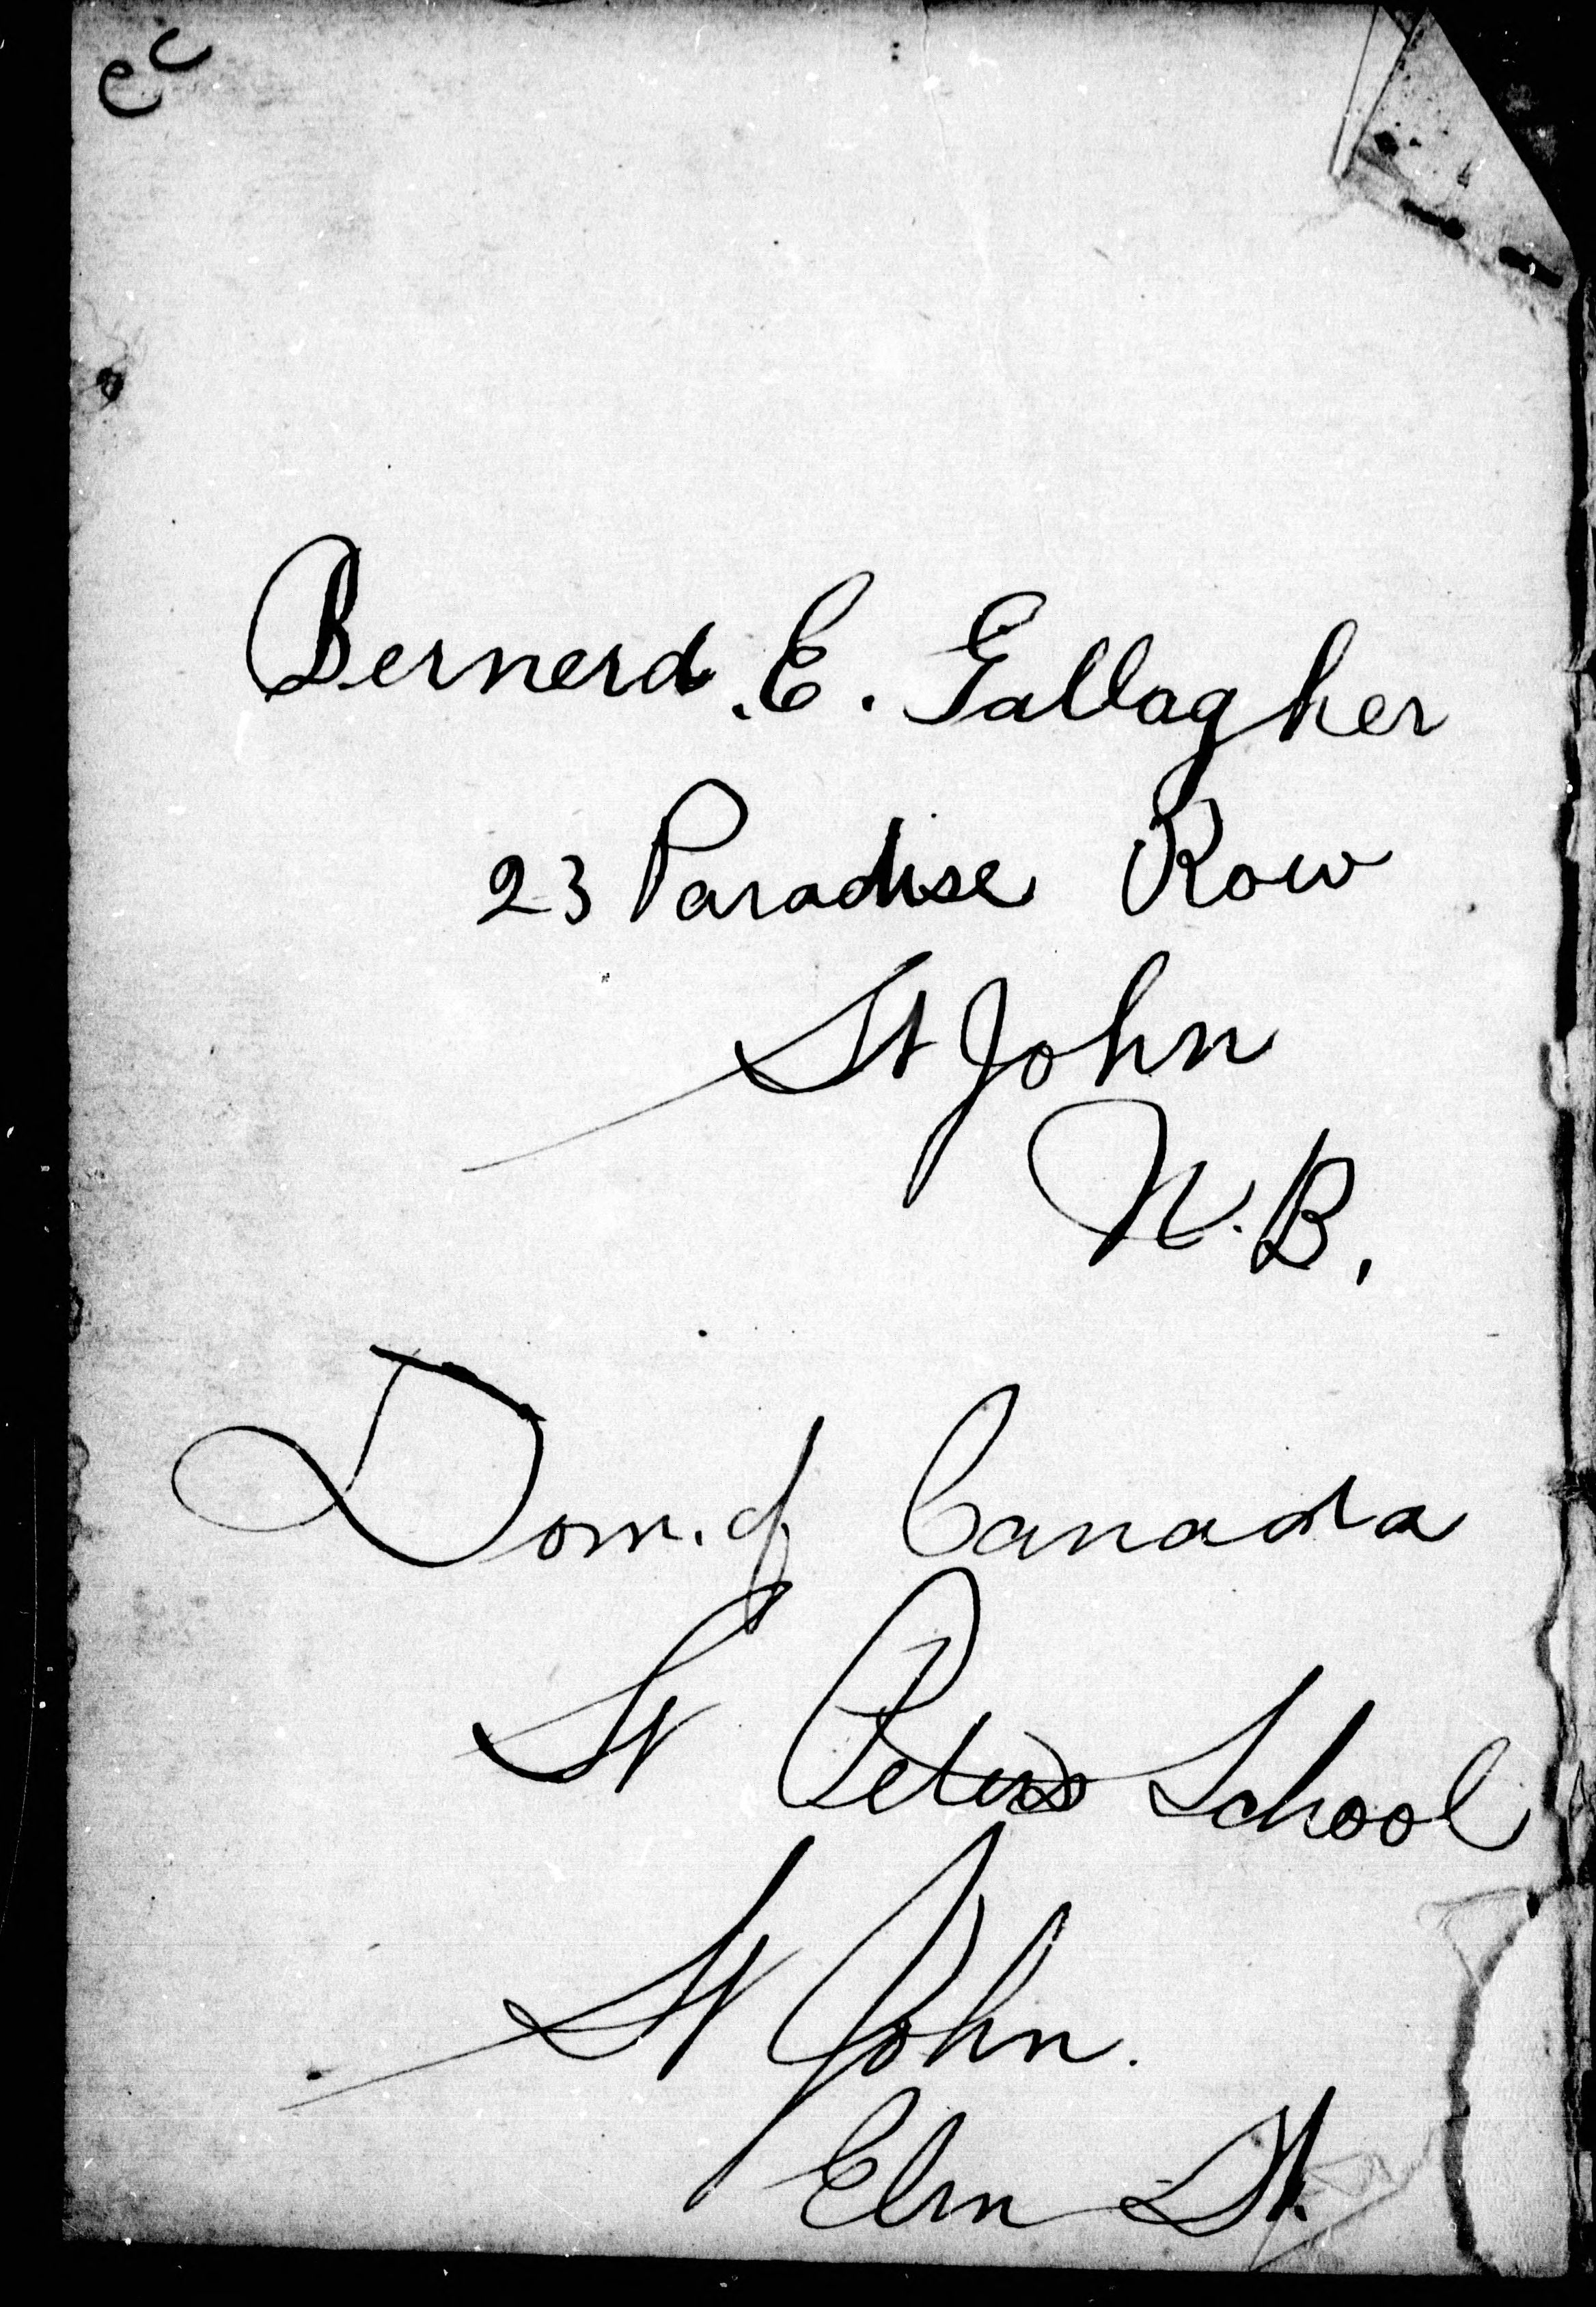 ec
Bernerd. E. Gallagher
23 Paradise Row
St John
N. B.
Dom. of Canada
St Peters School
St John.
Elm St.